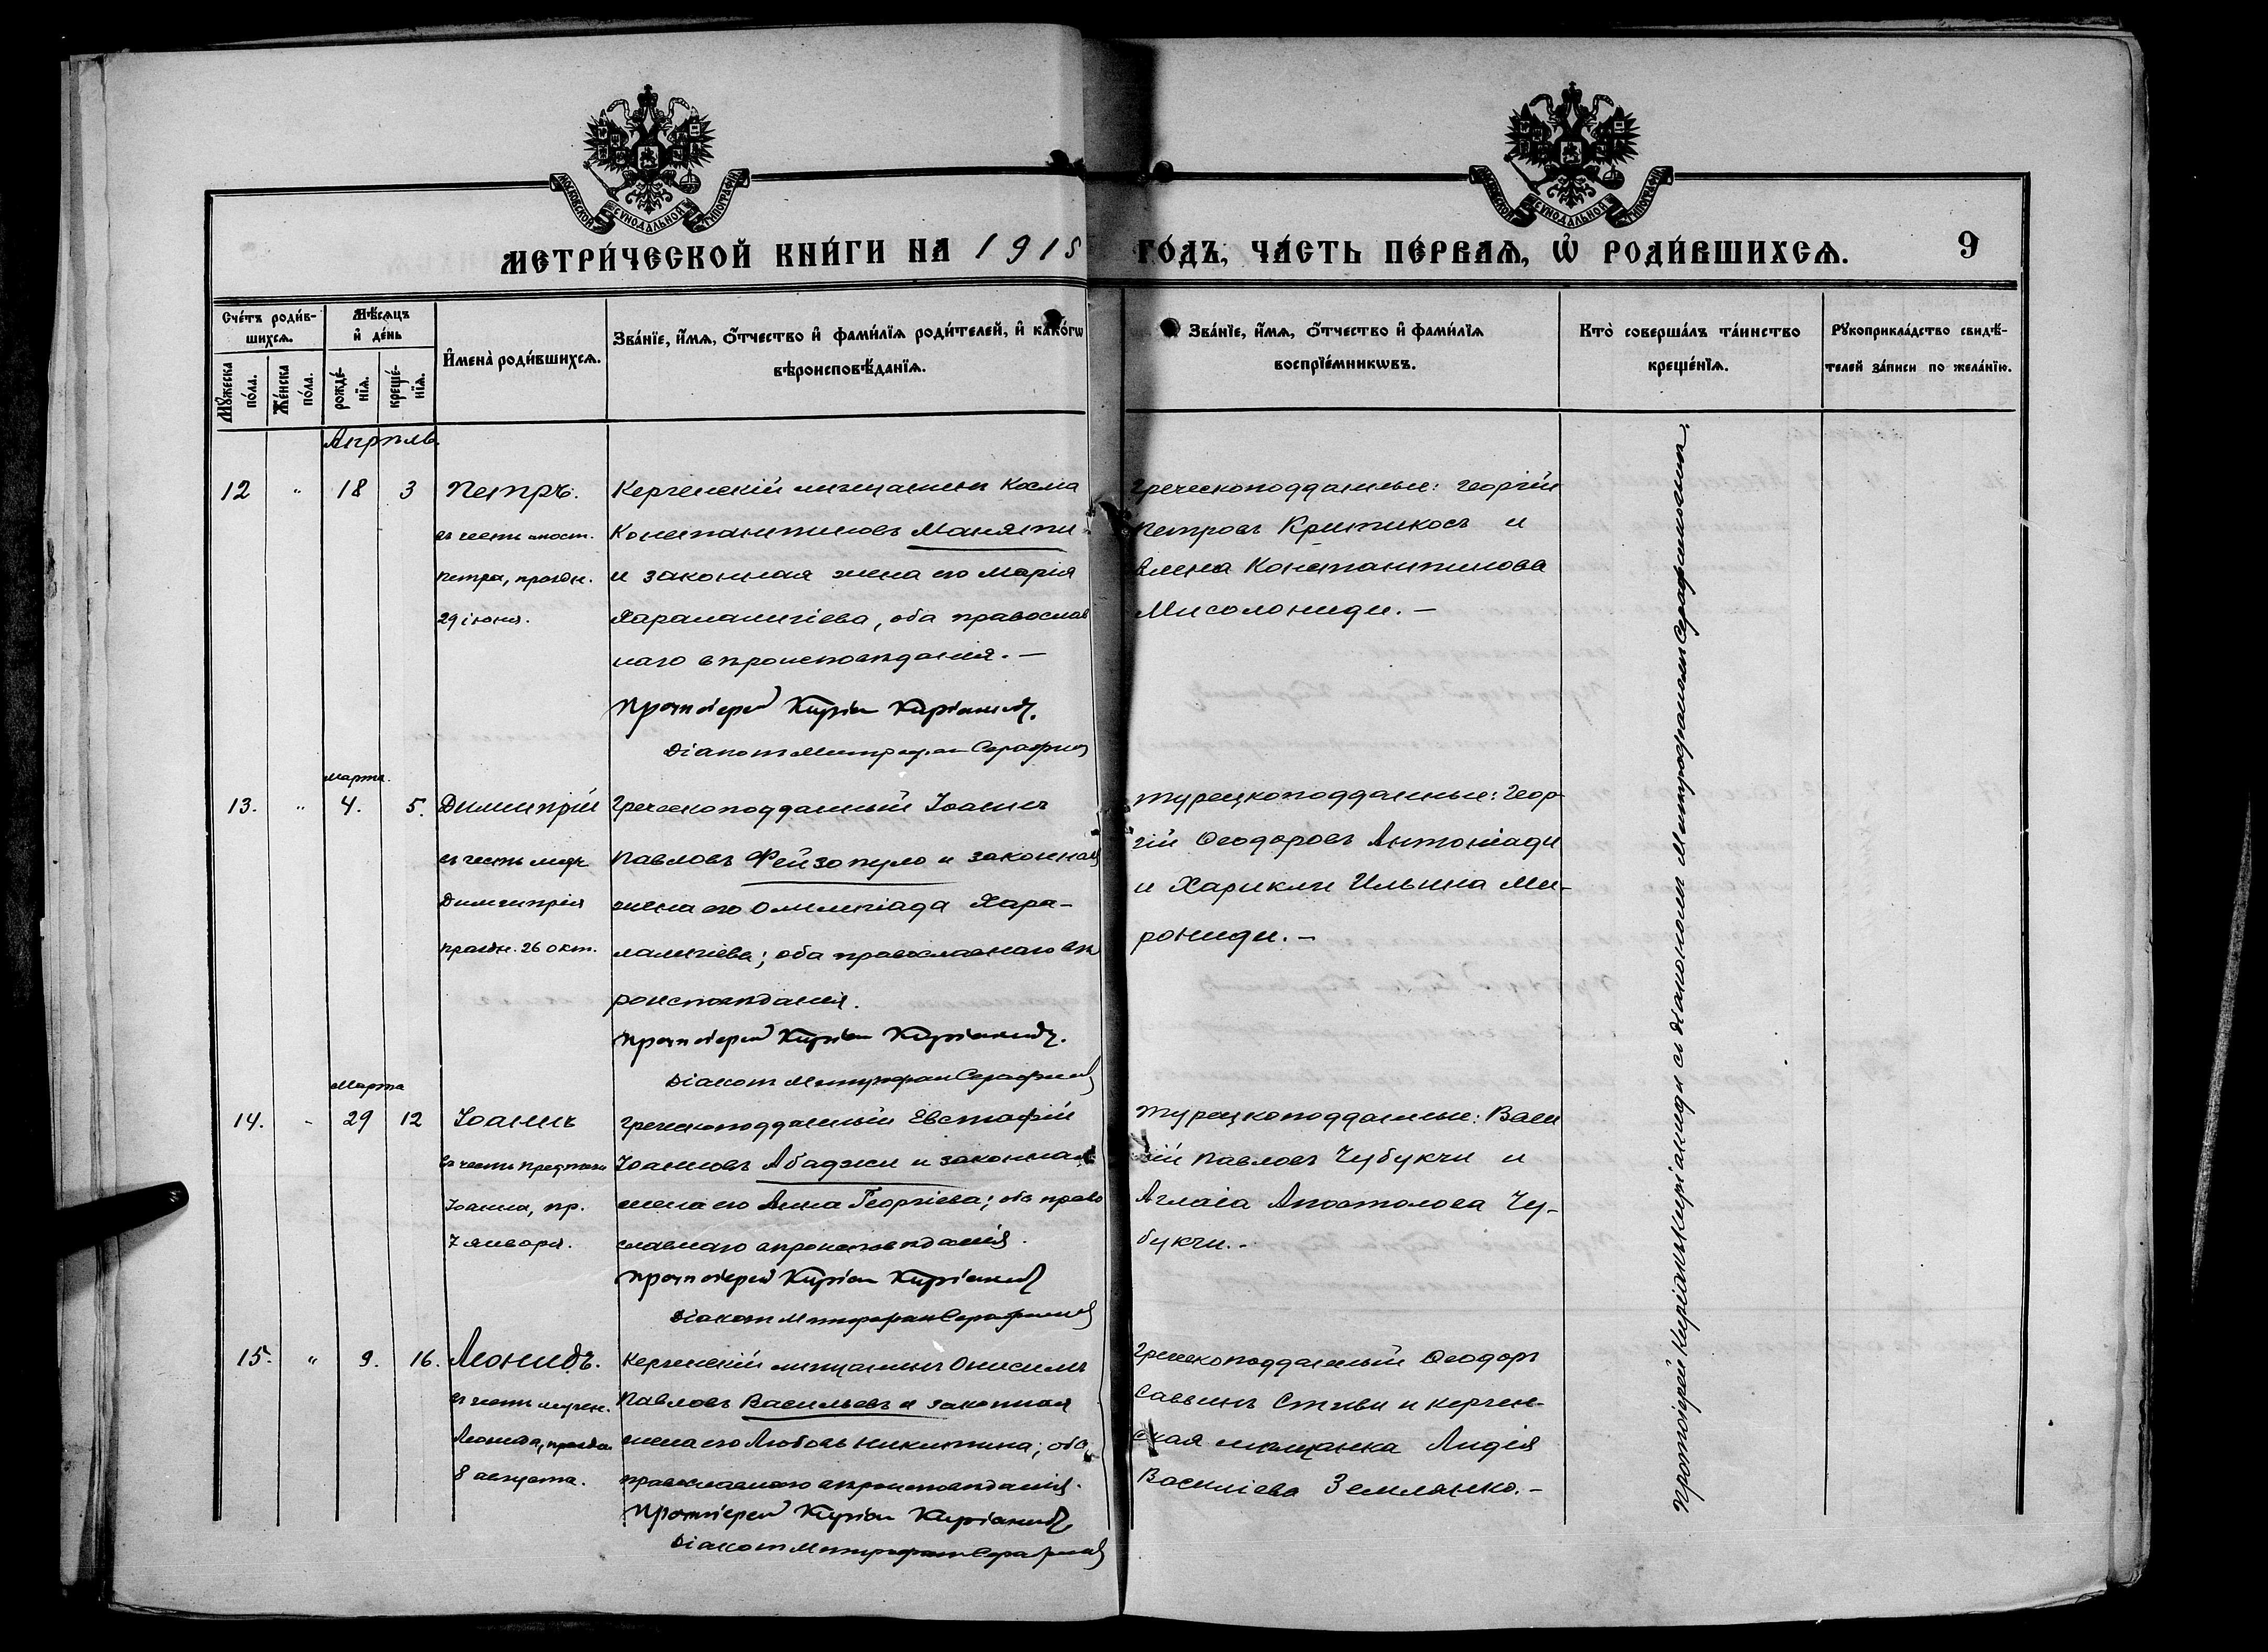 МОСКОВСКОЙ СѴНОДАЛЬНОЙ ТИПОГРАФІИ
МОСКОВСКОЙ СѴНОДАЛЬНОЙ ТИПОГРАФІИ
МЕТРИ́ЧЕСКОЙ КНИ́ГИ НА 1915
ГО́ДЪ, ЧА́СТЬ ПЕ́РВАѦ, Ѡ҆ РОДИ́ВШИХСѦ.
9
Сче́тъ роди́в-
шихсѧ.
Мꙋ́жеска по́ла.
Же́нска по́ла.
Мѣ́сѧцъ
и҆ де́нь
рожде́-
нїѧ.
креще́-
нїѧ.
И҆мена̀ роди́вшихсѧ.
Зва́нїе, и҆́мѧ, ѻ҆́тчество и҆ фами́лїѧ роди́телей, и҆ како́гѡ
вѣроисповѣ́данїѧ.
Зва́нїе, и҆́мѧ, ѻ҆́тчество и҆ фами́лїѧ
воспрїе́мникѡвъ.
Кто̀ соверша́лъ та́инство
креще́нїѧ.
Рꙋкоприкла́дство свидѣ́-
телей за́писи по жела́нїю.
Апрѣль.
12 " 18 3
Петръ.
въ честь апост.
Петра, праздн.
29 іюня.
Керченскій мѣщанинъ Косма
Константиновъ Маняти
и законная жена его Марія
Харалампіева, оба православ
наго вѣроисповѣданія. —
Протоіерей Кирьян Кирианиди.
Діаконъ Митрофан Серафимов
Греческоподданные: Георгій
Петровъ Критикосъ и
Елена Константинова
Мисолониди. —
Марта.
13. " 4. 5.
Димитрій
въ честь муч.
Димитрія
праздн. 26 окт.
Греческоподданный Іоаннъ
Павловъ Фейзопуло и законная
жена его Олимпіада Хара-
лампіева; оба православнаго вѣ
роисповѣданія.
Протоіерей Кирьян Кирианиди.
Діаконъ Митрофан Серафимов
Турецкоподданные: Геор-
гій Ѳеодоровъ Антоніади
и Харикли Ильина Ми-
рониди. —
Марта
14. " 29 12
Іоаннъ
въ честь Предтечи
Іоанна, пр.
7 января.
Греческоподданный Евстафій
Іоанновъ Абаджи и законная
жена его Анна Георгіева; оба право
славнаго вѣроисповѣданія.
Протоіерей Кирьян Кирианиди
Діаконъ Митрофан Серафимов
Турецкоподданные: Васи
лій Павловъ Чубукчи и
Аглаіа Апостолова Чу-
букчи. -
15. " 9. 16.
Леонидъ.
въ честь мучен.
Леонида, праздн.
8 августа.
Керченскій мѣщанинъ Онисимъ
Павловъ Васильевъ и законная
жена его Любовь Никитина; оба
православнаго вѣроисповѣданія.
Протоіерей Кирьян Кирианиди
Діаконъ Митрофан Серафимов
Греческоподданный Ѳеодоръ
Саввинъ и Керчен-
ская мѣщанка Лидія
Василіева Землянко. —
Протоіерей Киріанъ Киріаниди съ діакономъ Митрофаномъ Серафимовымъ.